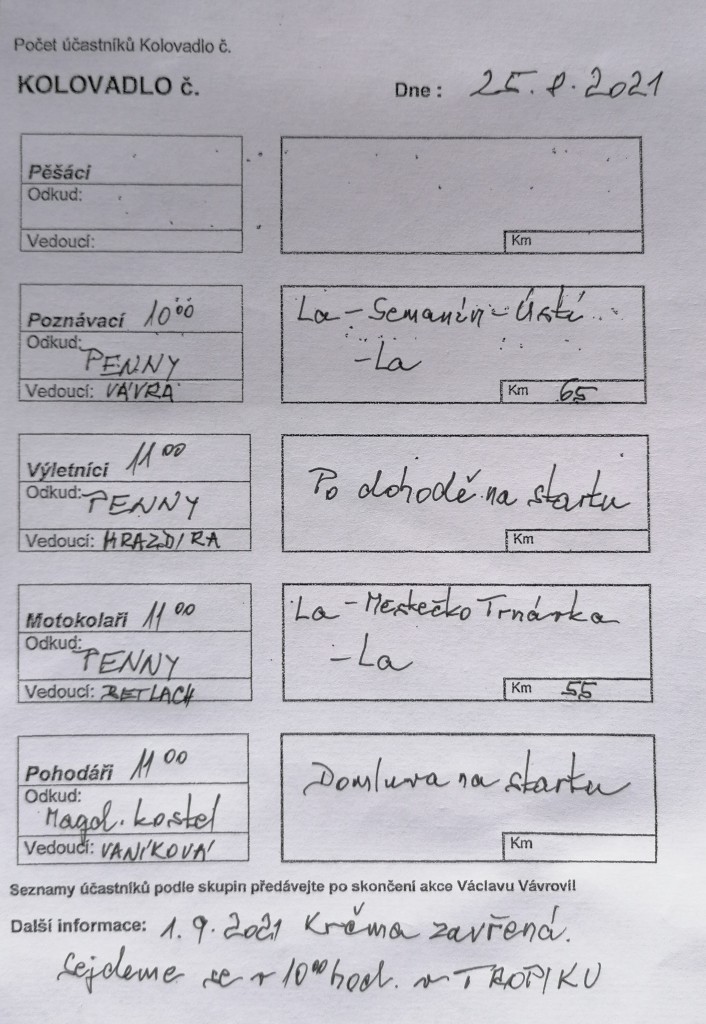 Počet účastníků Kolovadlo č.
KOLOVADLO č. Dne : 25. 8. 2021
Pěšáci
Odkud:
Vedoucí:
Km
Poznávací 10⁰⁰
Odkud: PENNY
Vedoucí: VÁVRA
La - Semanín - Ústí
- La
Km 65
Výletníci 11⁰⁰
Odkud: PENNY
Vedoucí: HRAZDIRA
Po dohodě na startu
Km
Motokolaři 11⁰⁰
Odkud: PENNY
Vedoucí: BETLACH
La - Městečko Trnávka
- La
Km 55
Pohodáři 11⁰⁰
Odkud:
Magd. kostel
Vedoucí: VANÍKOVÁ
Domluva na startu
Km
Seznamy účastníků podle skupin předávejte po skončení akce Václavu Vávrovi!
Další informace: 1. 9. 2021 Krčma zavřená.
Sejdeme se v 10⁰⁰ hod. v TROPIKU